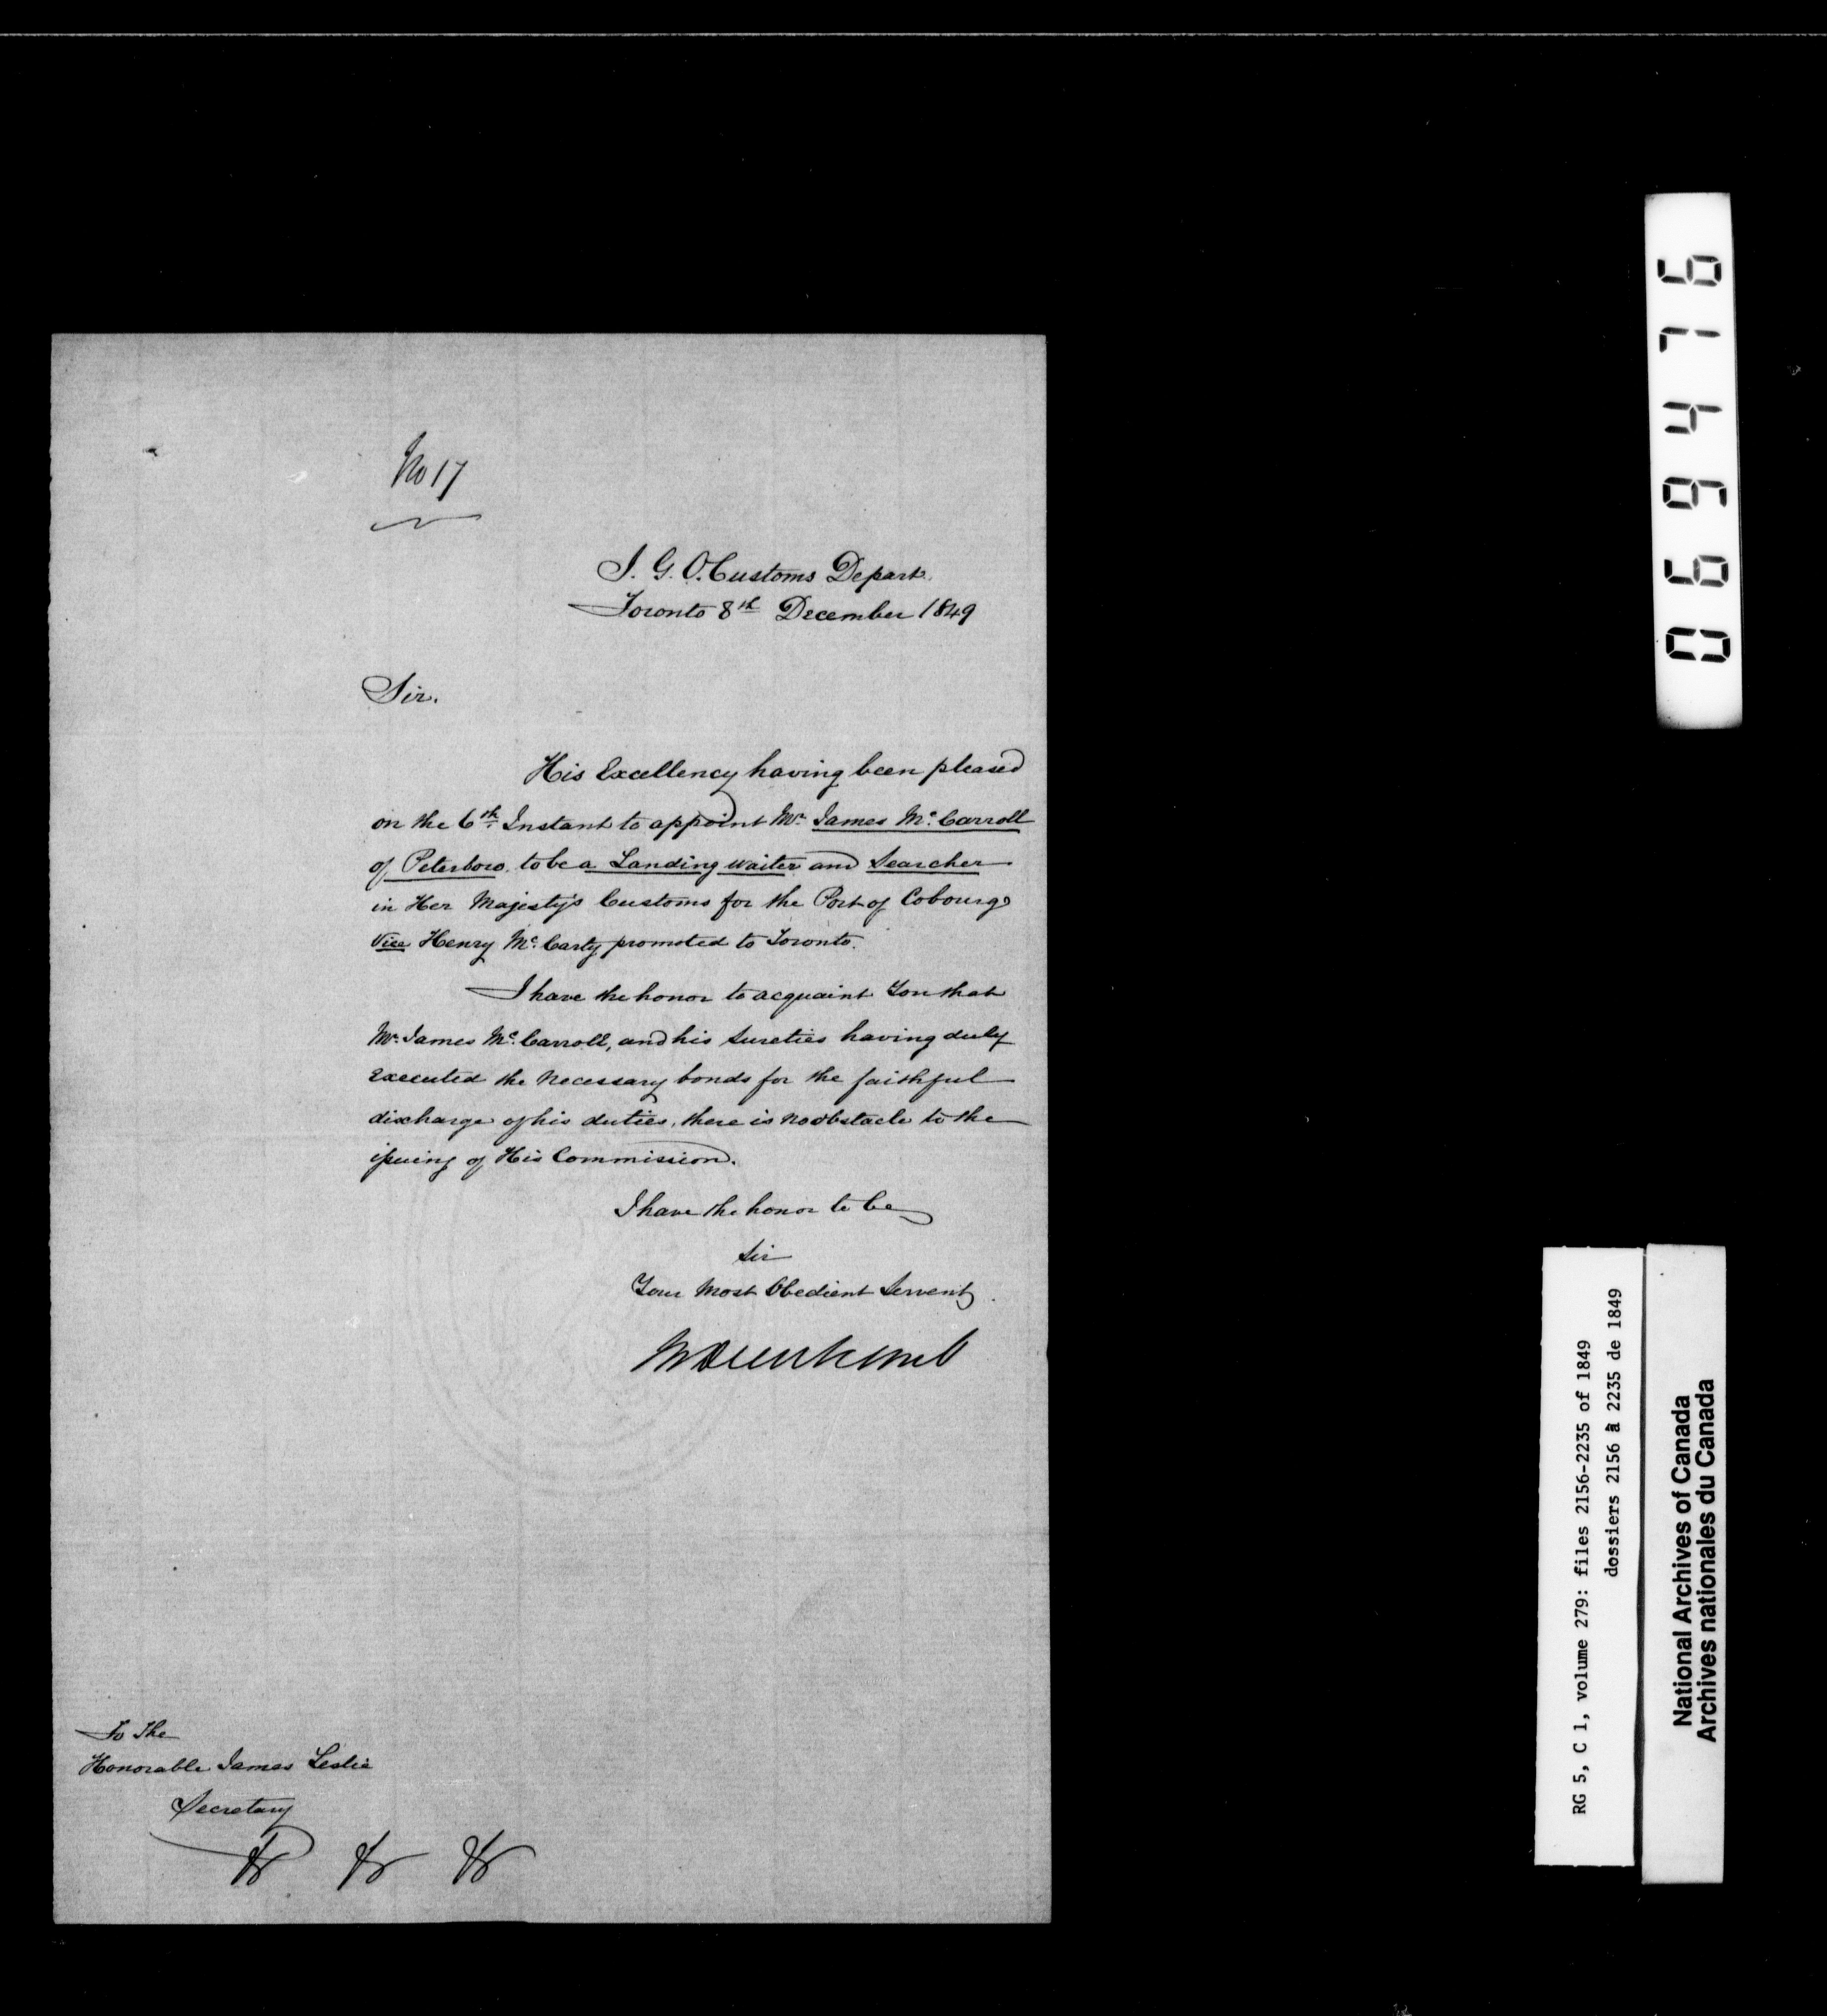 No 17
I. G. O. Customs Depart.
Toronto 8th December 1849
Sir.
His Excellency having been pleased
on the 6th Instant to appoint Mr. James Mc.Carroll
of Peterboro. to be a Landing Waiter and Searcher
in Her Majesty's Customs for the Port of Cobourg
Vice Henry Mc.Carty promoted to Toronto.
I have the honor to acquaint You that
Mr. James Mc.Carroll, and his Sureties having duly
Executed the Necessary bonds for the faithful
discharge of his duties, there is no obstacle to the
issuing of His Commission.
I have the honor to be
Sir
Your Most Obedient Servent
To The
Honorable James Leslie
Secretary
&c &c &c
069476
RG 5, C 1, volume 279: files 2156-2235 of 1849
dossiers 2156 à 2235 de 1849
National Archives of Canada
Archives nationales du Canada